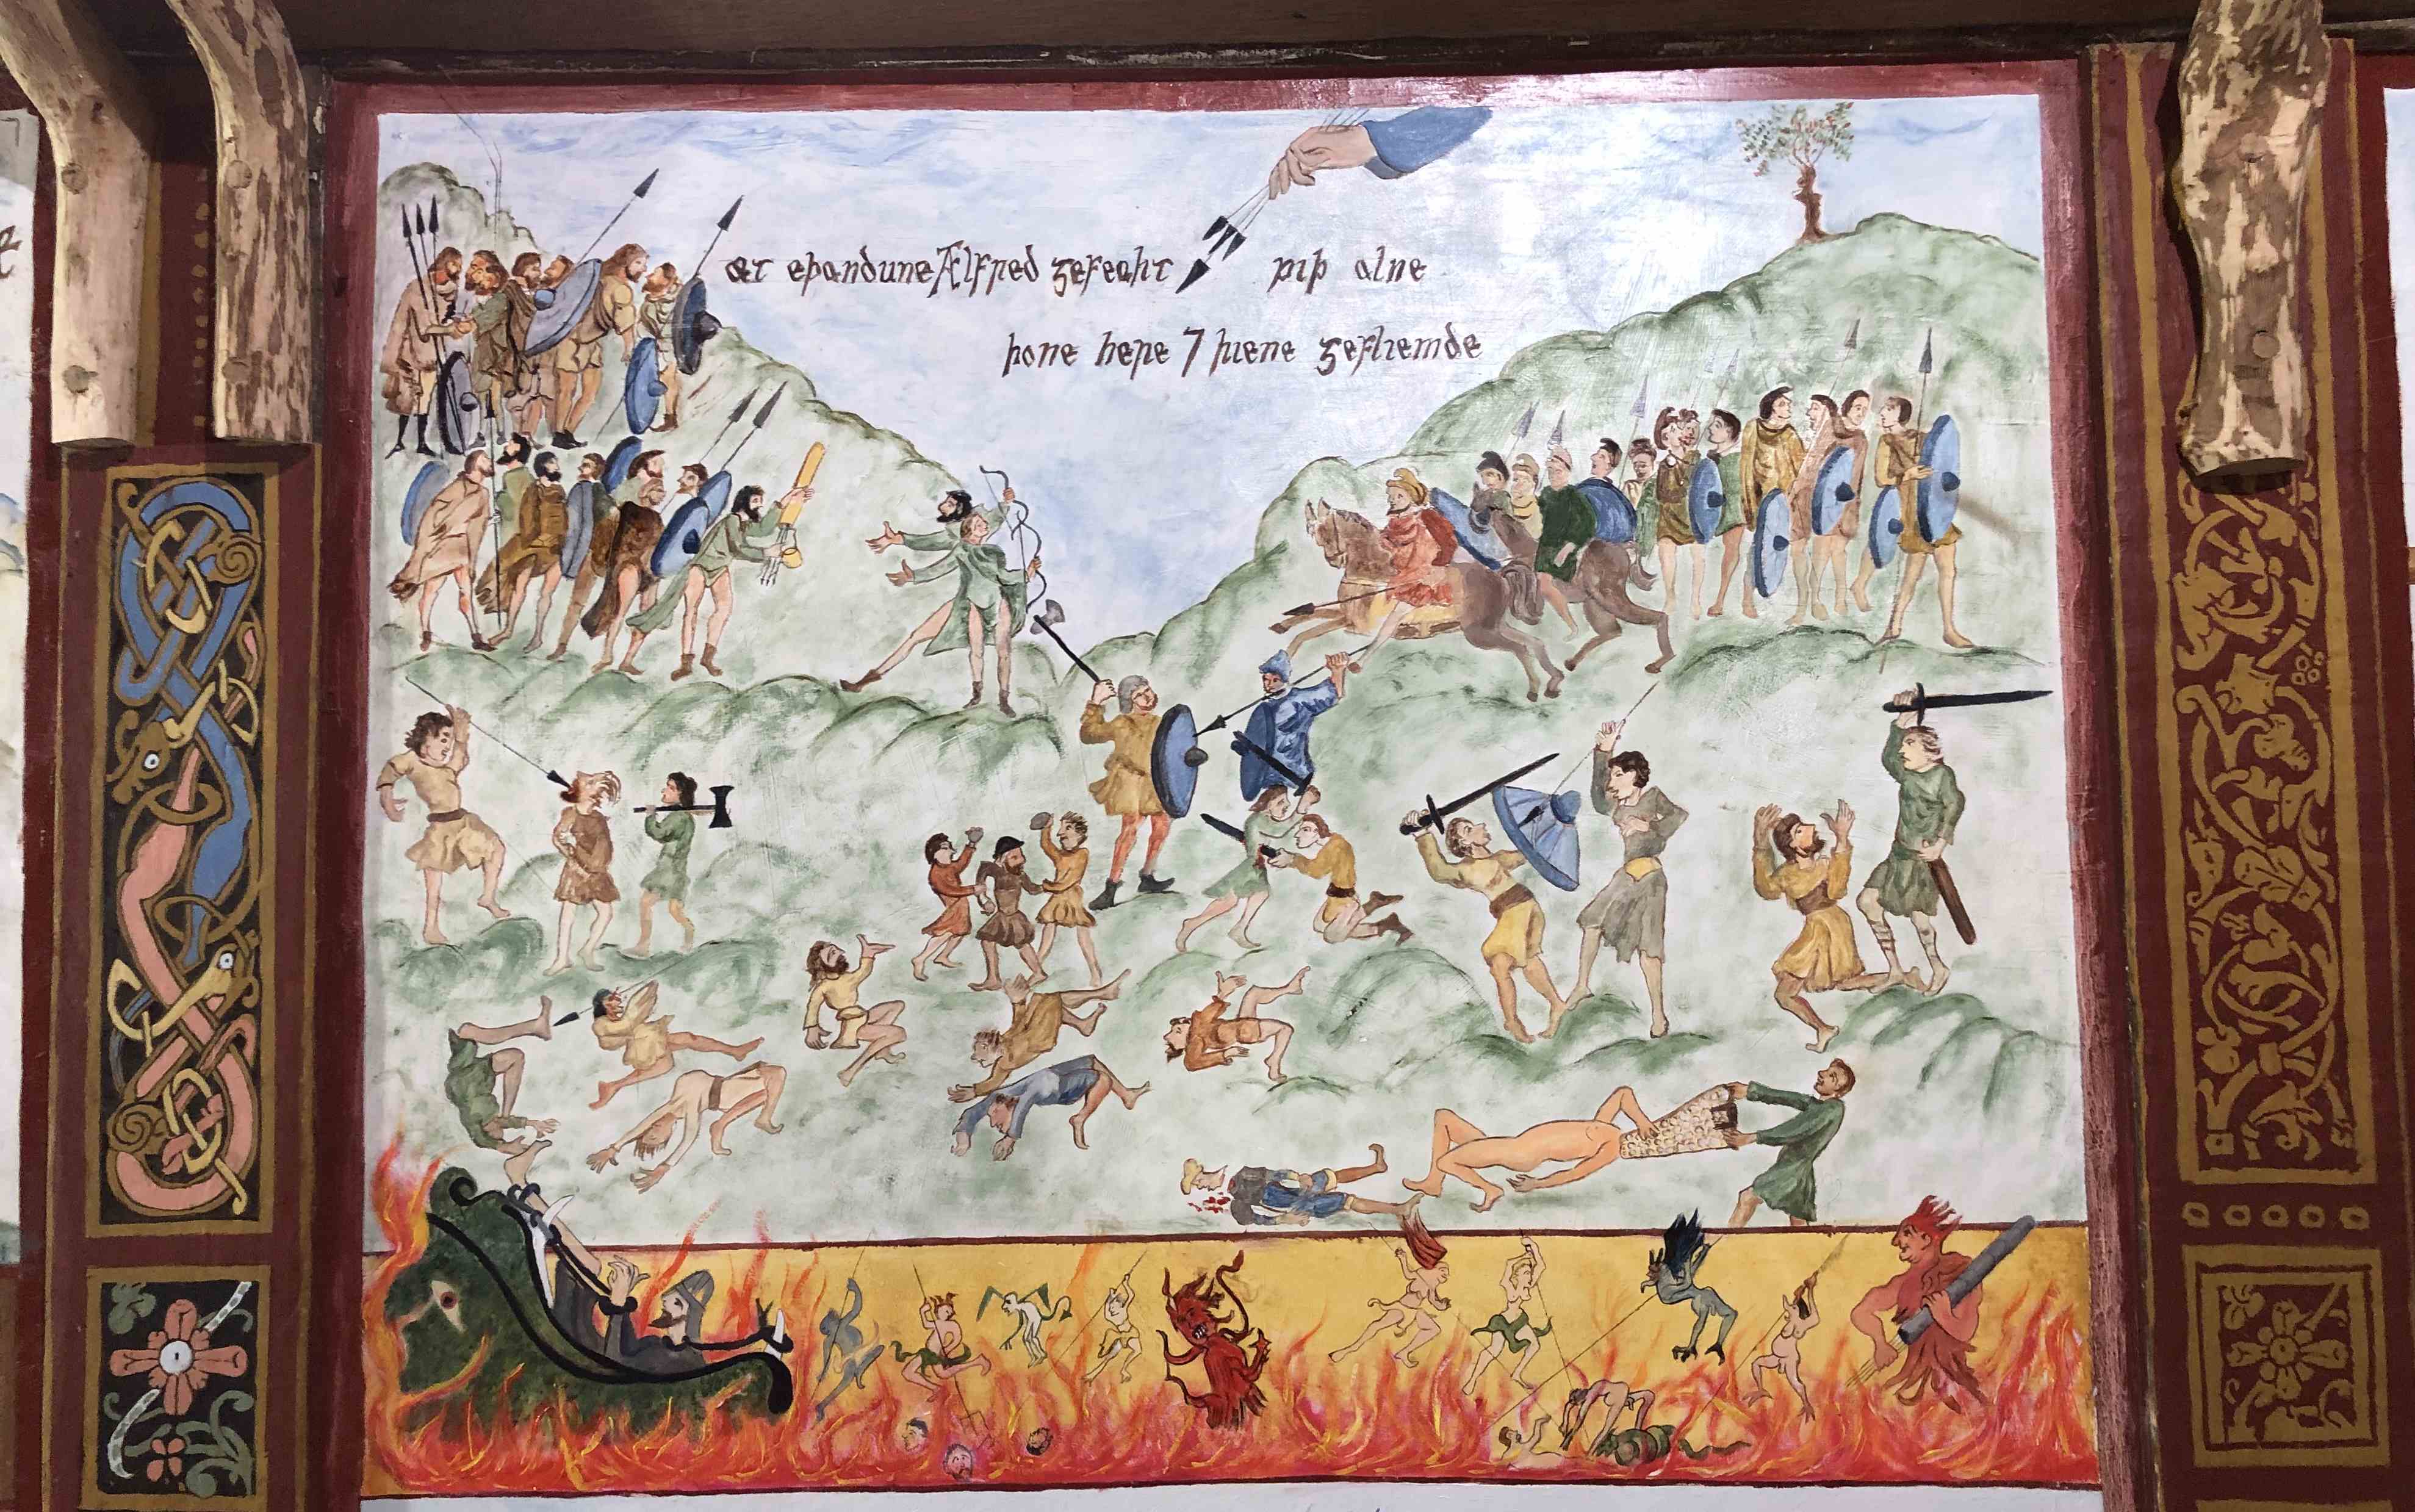 æt eþandune Ælfred gefeaht ƿiþ alne
þone here ⁊ hiene gefliemde